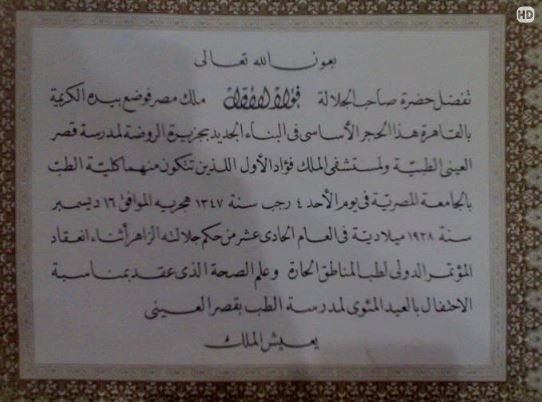 HD
بعون الله تعالى
تفضل حضرة صاحب الجلالة فؤاد الأول ملك مصر فوضع بيده الكريمة
بالقاهرة هذا الحجر الأساسى فى البناء الجديد بجزيرة الروضة لمدرسة قصر
العينى الطبية ولمستشفى الملك فؤاد الأول اللذين تتكون منهما كلية الطب
بالجامعة المصرية فى يوم الأحد ٤ رجب سنة ١٣٤٧ هجريه الموافق ١٦ ديسمبر
سنة ١٩٢٨ ميلادية فى العام الحادى عشر من حكم جلالته الزاهر أثناء انعقاد
المؤتمر الدولى لطب المناطق الحارة وعلم الصحة الذى عقد بمناسبة
الاحتفال بالعيد المئوى لمدرسة الطب بقصر العينى
يعيش الملك